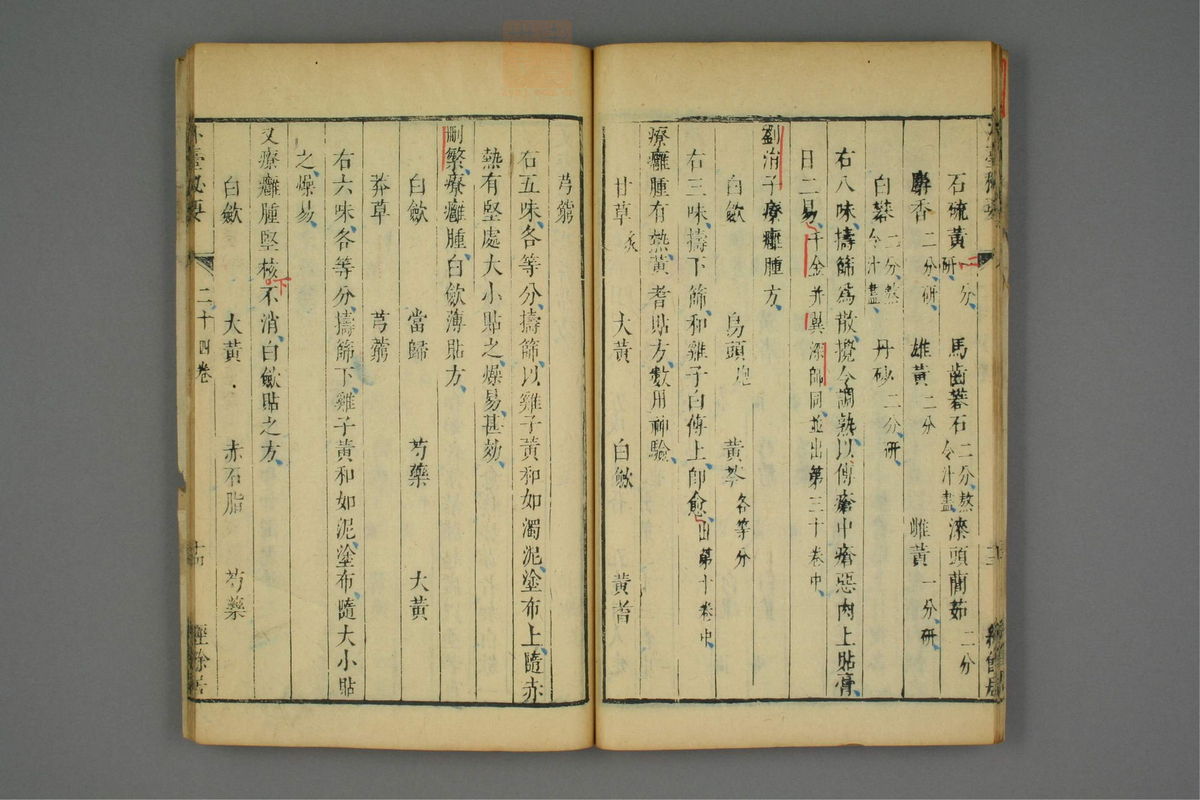 石硫黃一分研 馬齒礬石二分熬令汁盡 漆頭䕡茹二分
麝香二分研 雄黃二分 雌黃一分研
白礬二分熬令汁盡 丹砂二分研
右八味擣篩為散攪令調熟以傅瘡中瘡惡肉上貼膏
日二易千金并翼深師同並出第三十卷中
劉涓子療癰腫方
白斂 烏頭炮 黃芩各等分
右三味擣下篩和雞子白傅上即愈出第十卷中
療癰腫有熱黃耆貼方數用神驗
甘草炙 大黃 白斂 黃耆
芎藭
右五味各等分擣篩以雞子黃和如濁泥塗布上隨赤
熱有堅處大小貼之燥易甚効
刪繁療癰腫白斂薄貼方
白斂 當歸 芍藥 大黃
莽草 芎藭
右六味各等分擣篩下雞子黃和如泥塗布隨大小貼
之燥易
又療癰腫堅核不消白斂貼之方
下
白斂 大黃 赤石脂 芍藥
外臺秘要 二十四卷 十四 經餘居